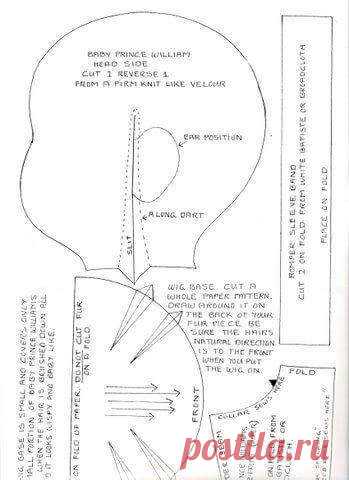 BABY PRINCE WILLIAM
HEAD SIDE
CUT 1 REVERSE 1
FROM A FIRM KNIT LIKE VELOUR
EAR POSITION
ALONG DART
SLIT
ROMPER SLEEVE BAND
CUT 2 ON FOLD FROM WHITE BATISTE OR BROADCLOTH
PLACE ON FOLD
WIG BASE. CUT A
WHOLE PAPER PATTERN.
DRAW AROUND IT ON
THE BACK OF YOUR
FUR PIECE. BE
SURE THE HAIRS
NATURAL DIRECTION
IS TO THE FRONT
WHEN YOU PUT
THE WIG ON.
FRONT
ON FOLD OF PAPER. DO NOT CUT FUR
ON A FOLD
BASE IS SMALL AND COVERS ONLY
PORTION OF BABY PRINCE WILLIAM'S
WHEN THE HAIR IS BRUSHED DOWN ALL
IT LOOKS WISPY AND BABY LIKE.
FOLD
COLLAR SEWS HERE
FROM
OR
postila.ru